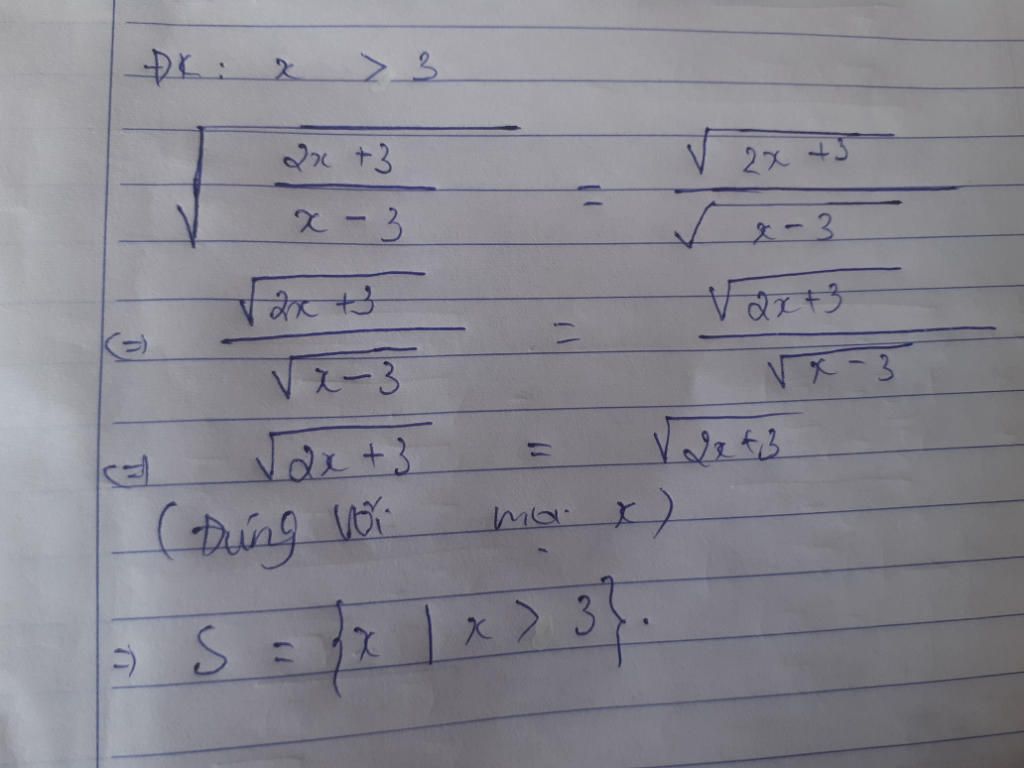 ĐK: x > 3
√(2x+3 / x-3) = √(2x+3) / √(x-3)
<=> √(2x+3) / √(x-3) = √(2x+3) / √(x-3)
<=> √(2x+3) = √(2x+3)
(Đúng với mọi x)
=> S = {x | x > 3}.